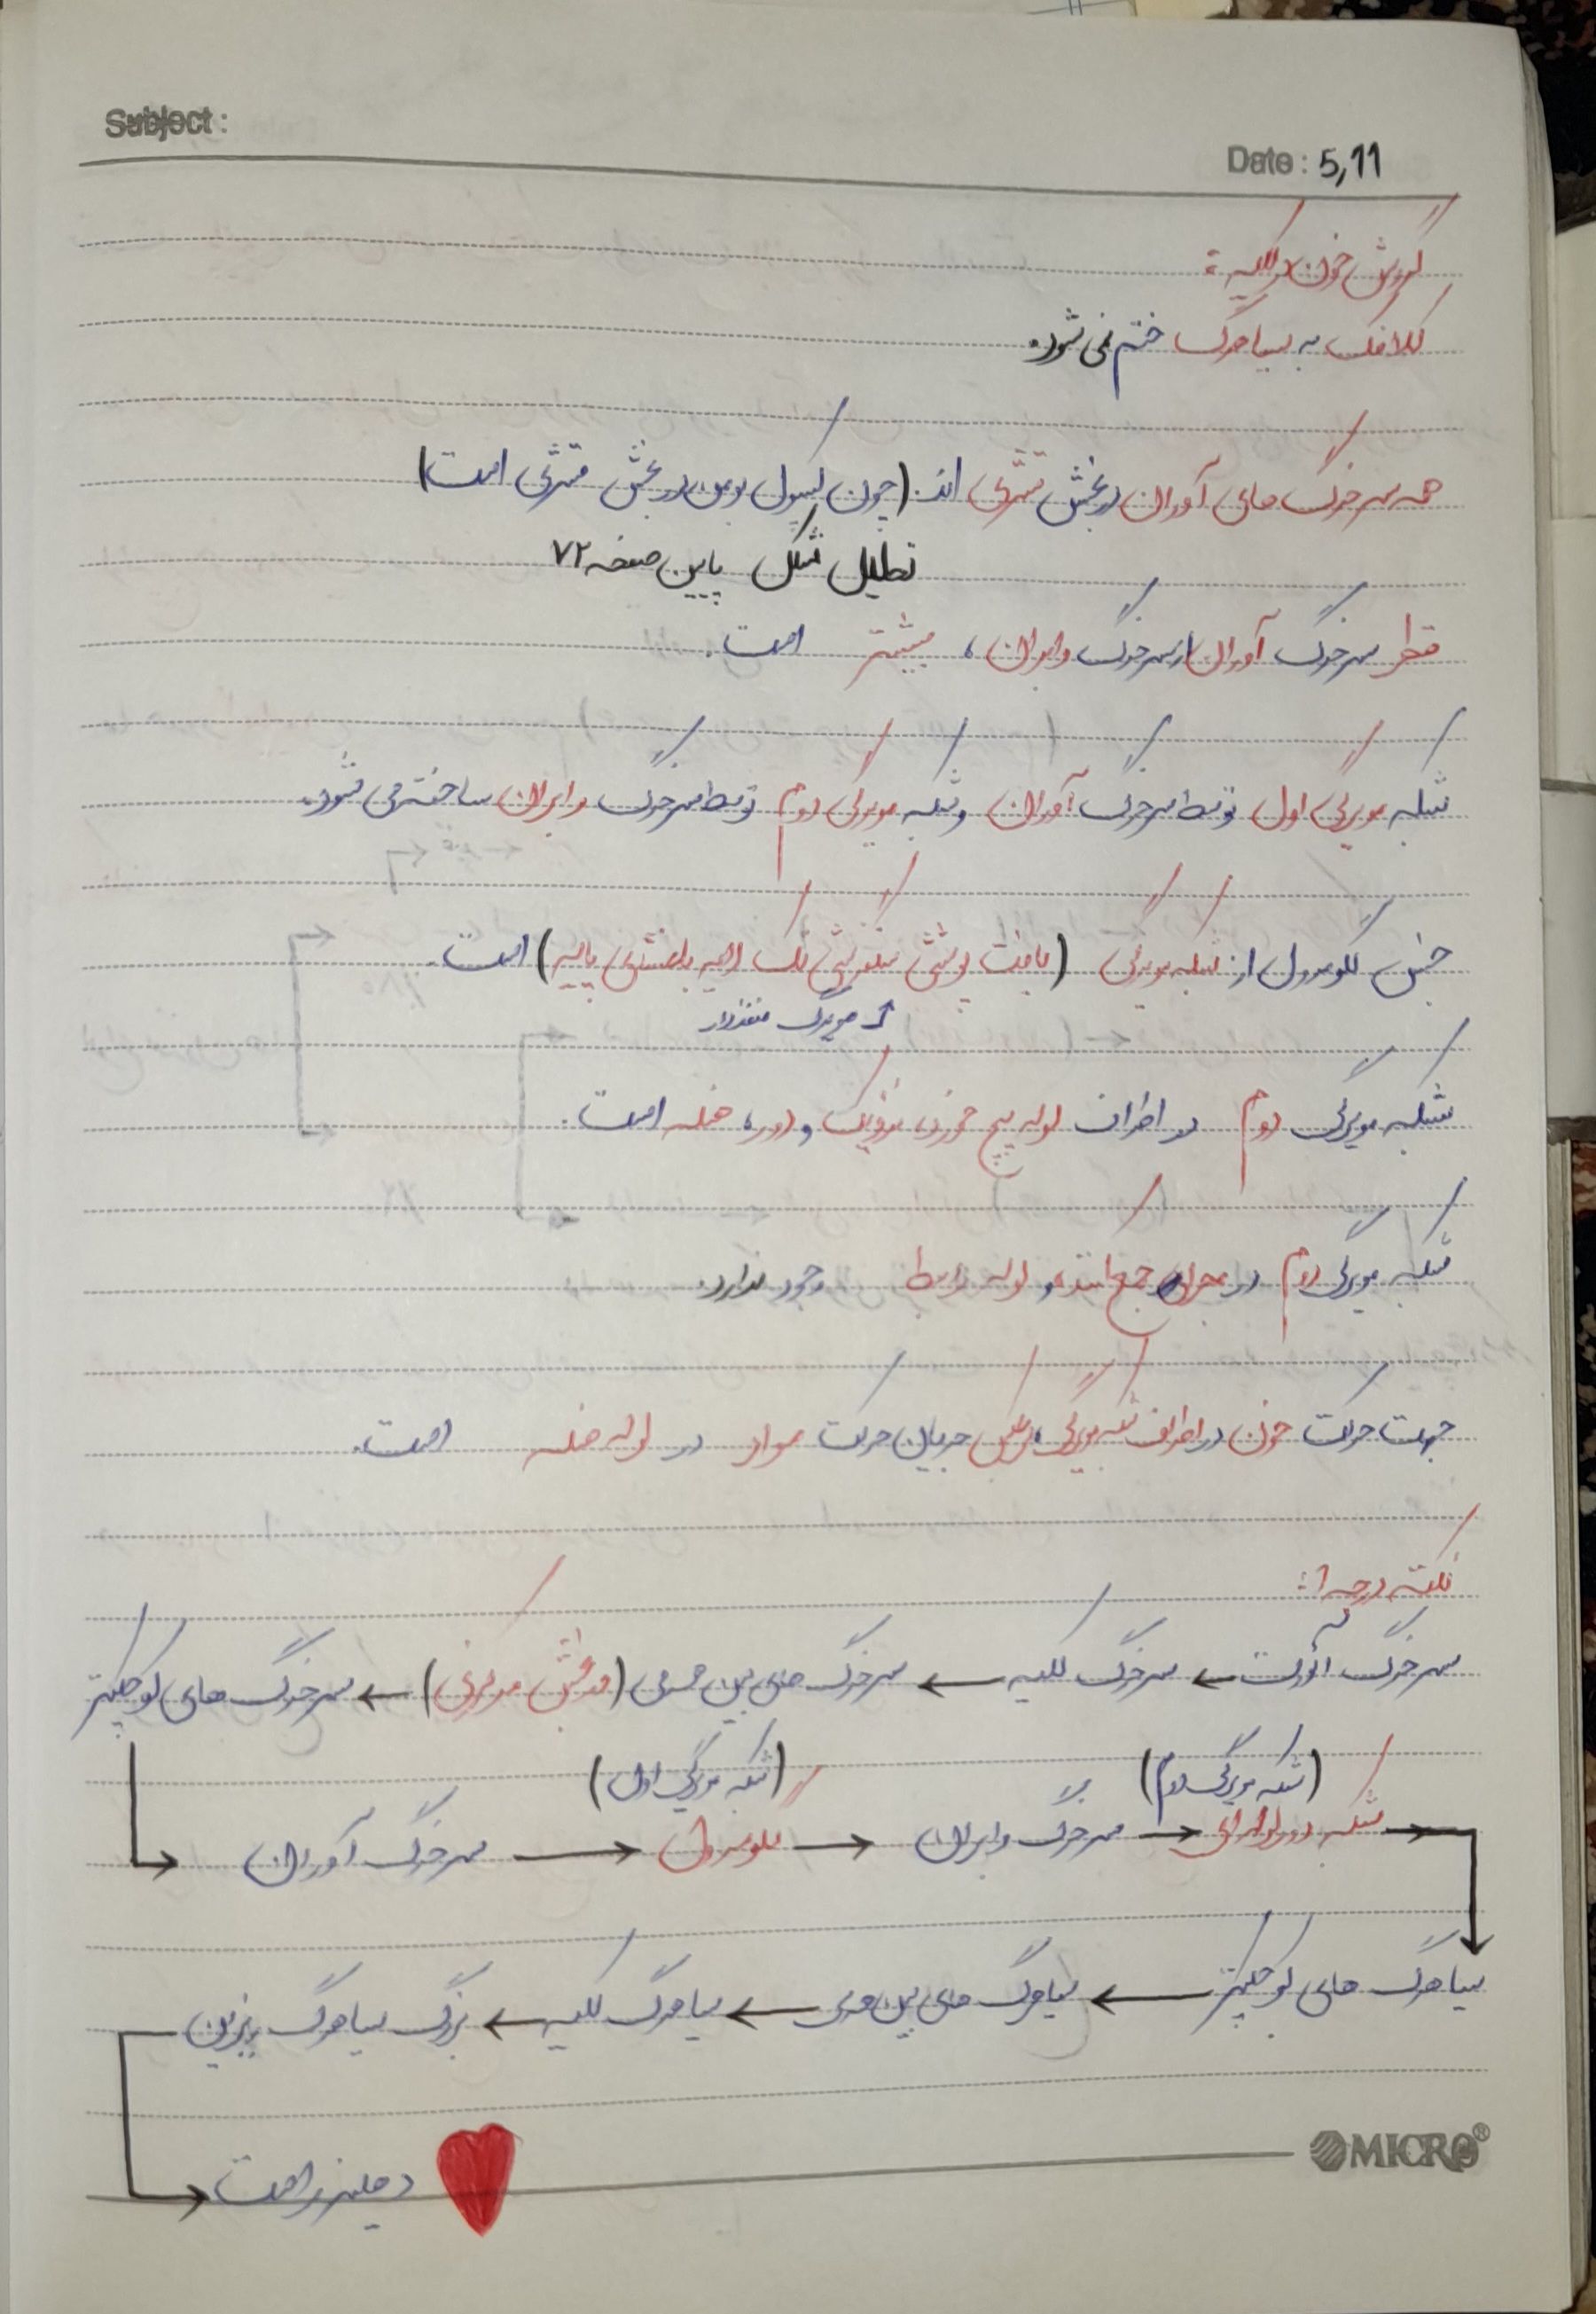 Subject :
Date : 5,11
گردش خون در کلیه :
کلافک به سیاهرگ ختم نمی شود.
همه سرخرگ های آوران در بخش قشری اند. (چون کپسول بومن در بخش قشری است)
تحلیل شکل پایین صفحه ۷۲
قطر سرخرگ آوران از سرخرگ وابران، بیشتر است.
شبکه مویرگی اول توسط سرخرگ آوران و شبکه مویرگی دوم توسط سرخرگ وابران ساخته می شود.
جنس گلومرول از شبکه مویرگی (بافت پوششی سنگفرشی تک لایه با غشای پایه) است.
مویرگ منفذدار
شبکه مویرگی دوم در اطراف لوله پیچ خورده نزدیک و دور، هنله است.
شبکه مویرگی دوم در مجرای جمع کننده و لوله رابط وجود ندارد.
جهت حرکت خون در اطراف شبکه مویرگی، برعکس جریان حرکت مواد در لوله هنله است.
نکته درجه ۱ :
سرخرگ آئورت ← سرخرگ کلیه ← سرخرگ های بین هرمی (در بخش مرکزی) ← سرخرگ های کوچکتر
(شبکه مویرگی دوم) (شبکه مویرگی اول)
سرخرگ آوران → گلومرول → سرخرگ وابران → شبکه دور لوله ای
سیاهرگ های کوچکتر ← سیاهرگ های بین هرمی ← سیاهرگ کلیه ← بزرگ سیاهرگ زیرین
دهلیز راست
MICRO®